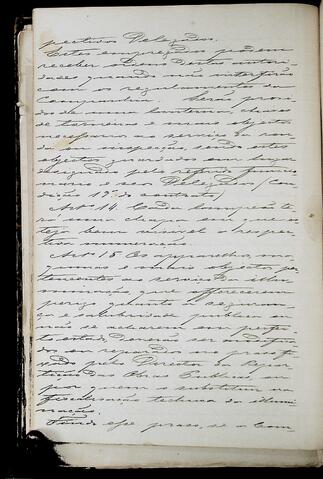 pectivos Delegados.
Estes empregados podem
receber ordens destas autori-
dades quando não interfirão
com os regulamentos da
Companhia. Serão provi-
dos de uma lanterna, chaves
de torneira e mais objectos
necessarios ao serviço de ron-
da e inspecção, sendo estes
objectos guardados em lugar
designado pelo referido funccio-
nario e seu Delegado (Con-
dição 19ª do contracto)
Artº 14. Cada lampeão te-
rá uma chapa em que es-
teja bem visivel a respec-
tiva numeração.
Artº 15 Os apparelhos, ma-
quinas e mais objectos per-
tencentes ao serviço da illu-
minação, que offerecerem
perigo quanto á seguran-
ça e salubridade publica ou
não se acharem em perfei-
to estado, deverão ser modifica-
dos, ou reparados no praso fi-
xado pelo Director da Repar-
tição das Obras Publicas, ou
por quem o substitua na
fiscalisação technica da illumi-
nação.
Findo esse praso, se a Com-